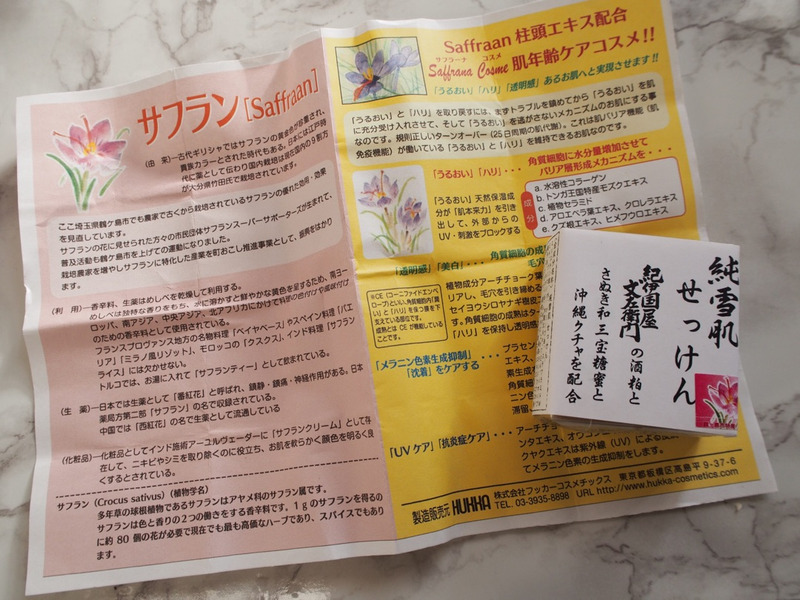 サフラン [Saffraan]
(由 来)―古代ギリシャではサフランの黄金色が珍重され、
貴族カラーとされた時代もある。日本には江戸時
代に薬として伝わり国内栽培は現在国内の9割方
が大分県竹田氏で栽培されています。
ここ埼玉県鶴ケ島市でも農家で古くから栽培されているサフランの優れた効用・効果
を見直しています。
サフランの花に見せられた方々の市民団体サフランスーパーサポーターズが生まれて、
普及活動も鶴ケ島市を上げての運動になりました。
栽培農家を増やしサフランに特化した産業を町おこし推進事業として、振興をはかり
ます。
(利 用)―香辛料、生薬はめしべを乾燥して利用する。
めしべは独特な香りをもち、水に溶かすと鮮やかな黄色を呈するため、南ヨー
ロッパ、南アジア、中央アジア、北アフリカにかけて料理の色付けや風味付け
のための香辛料として使用されている。
フランスプロヴァンス地方の名物料理「ベイヤベース」やスペイン料理「パエ
リア」「ミラノ風リゾット」、モロッコの「クスクス」、インド料理「サフラン
ライス」には欠かせない。
トルコでは、お湯に入れて「サフランティー」として飲まれている。
(生 薬)―日本では生薬として「番紅花」と呼ばれ、鎮静・鎮痛・神経作用がある。日本
薬局方第二部「サフラン」の名で収録されている。
中国では「西紅花」の名で生薬として流通している
(化粧品)―化粧品としてインド施術アーユルヴェーダーに「サフランクリーム」として存
在して、ニキビやシミを取り除くのに役立ち、お肌を軟らかく顔色を明るく良
くするとされている。
サフラン (Crocus sativus) (植物学名)
多年草の球根植物であるサフランはアヤメ科のサフラン属です。
サフランは色と香りの2つの働きをする香辛料です。1gのサフランを得るの
に約 80 個の花が必要で現在でも最も高価なハーブであり、スパイスでもあり
ます。
Saffraan 柱頭エキス配合
サフラーナ コスメ
Saffrana Cosme 肌年齢ケアコスメ!!
「うるおい」「ハリ」「透明感」あるお肌へと実現させます!!
「うるおい」と「ハリ」を取り戻すには、まずトラブルを鎮めてから「うるおい」を肌
に充分受け入れさせて、そして「うるおい」を逃がさないメカニズムのお肌にする事
なのです。規則正しいターンオーバー(25日周期の肌代謝)。これは肌バリア機能(肌
免疫機能)が働いている「うるおい」と「ハリ」を維持できるお肌なのです。
「うるおい」「ハリ」・・・ 角質細胞に水分量増加させて
バリア層形成メカニズムを・・・
「うるおい」天然保湿成
分が「肌本来力」を引き
出して、外部からの
UV・刺激をブロックする
成分
a. 水溶性コラーゲン
b. トンガ王国特産モズクエキス
c. 植物セラミド
d. アロエベラ葉エキス、クロレラエキス
e. クズ根エキス、ヒメフウロエキス
「透明感」「美白」・・・ 角質細胞の成
毛穴
※CE(コーニファイドエンベ
ロープ)といい、角質細胞内「潤
い」と「ハリ」を保つ膜を下
支えている部位です。
成熟とは CE が機能している
ことです。
植物成分アーチチョーク葉
リアし、毛穴を引き締める
セイヨウシロヤナギ樹皮エ
す。角質細胞の成熟
「ハリ」を保し透明感
「メラニン色素生成抑制」
「沈着」をケアする ・・・
プラセン
エキス、
素生成
角質細
ニン
滞留
「UV ケア」「抗炎症ケア」・・・
アーチチョ
ンタエキス、オウゴン
クヤクエキスは紫外線(UV)による
てメラニン色素の生成抑制をします。
製造販売元 HUKKA 株式会社フッカーコスメチックス 東京都板橋区高島平 9-37-6
TEL. 03-3935-8898 URL http://www.hukka-cosmetics.com
純雪肌
せっけん
紀伊国屋
文左衛門の酒粕と
さぬき和三宝糖蜜と
沖縄クチャを配合